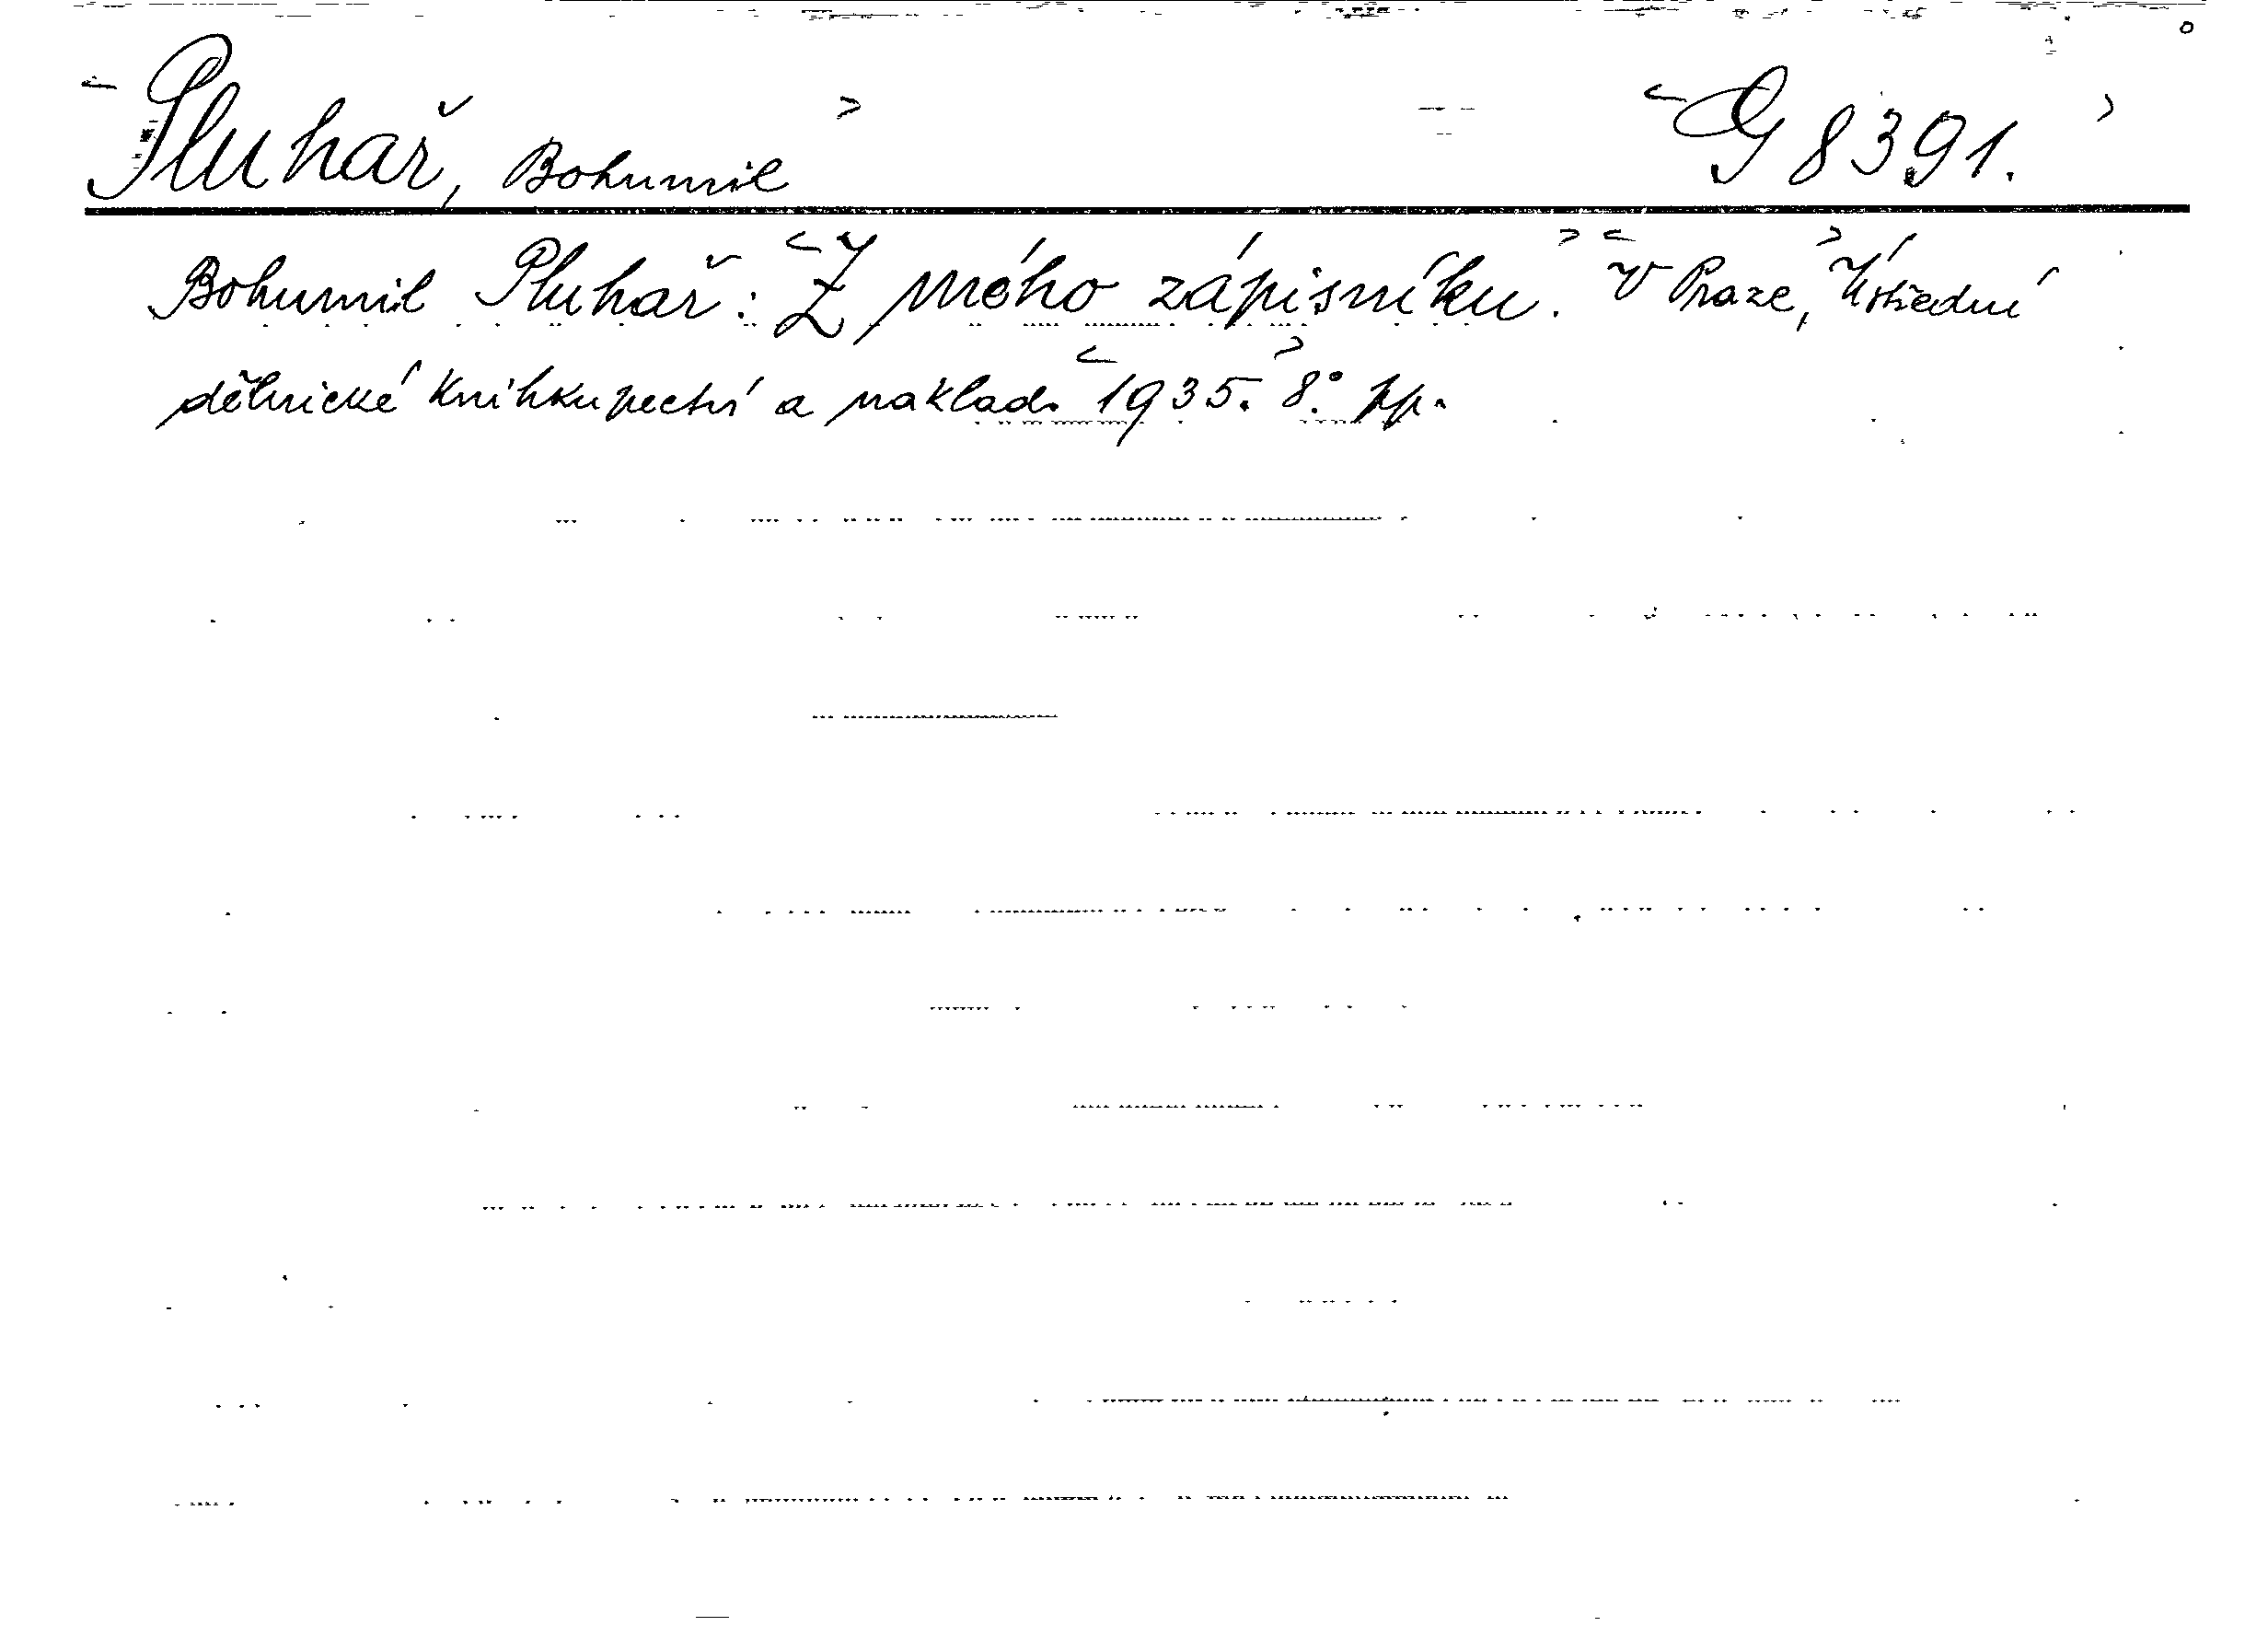 <Pluhař, Bohumil> <G 8391.>
Bohumil Pluhař: <Z mého zápisníku.> <V Praze,> Ústřední
dělnické knihkupectví a naklad. <1935.> 8°. pp.